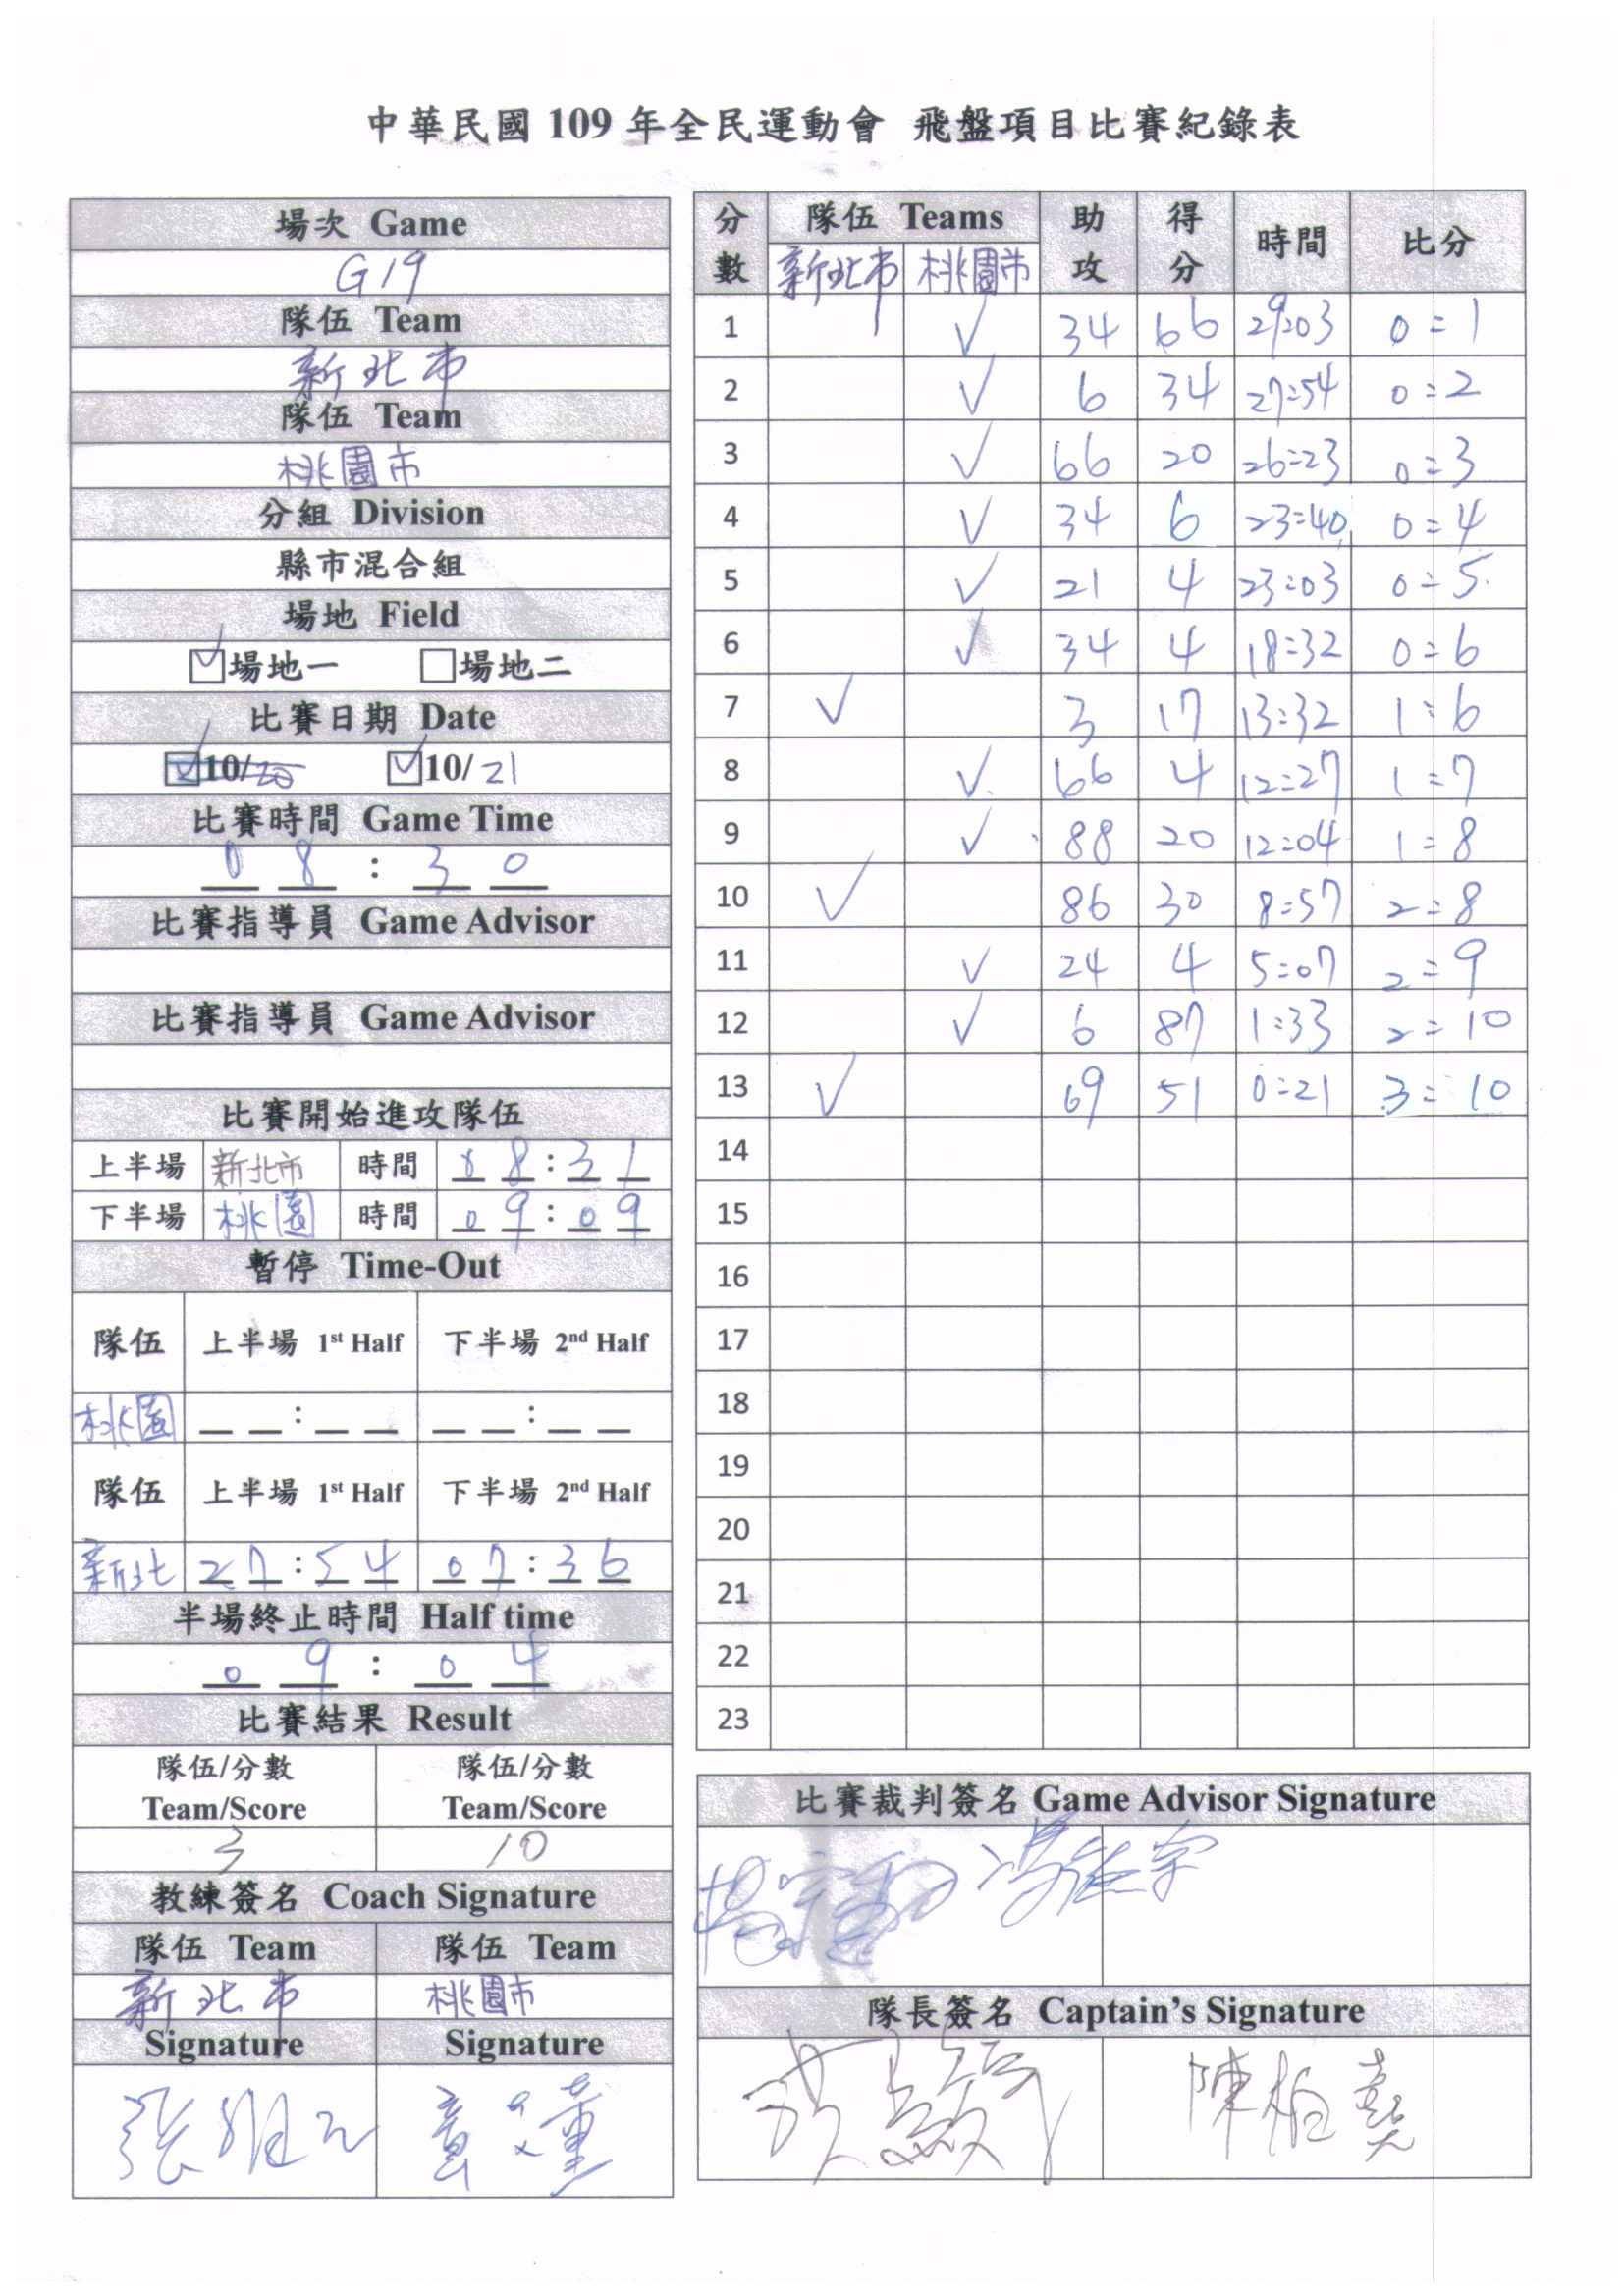 中華民國 109 年全民運動會 飛盤項目比賽紀錄表
場次 Game
G19
隊伍 Team
新北市
隊伍 Team
桃園市
分組 Division
縣市混合組
場地 Field
場地一 場地二
比賽日期 Date
10/20 10/21
比賽時間 Game Time
08:30
比賽指導員 Game Advisor
比賽指導員 Game Advisor
比賽開始進攻隊伍
上半場 新北市 時間 08:31
下半場 桃園 時間 09:09
暫停 Time-Out
隊伍 上半場 1st Half 下半場 2nd Half
桃園 __:__ __:__
隊伍 上半場 1st Half 下半場 2nd Half
新北 27:54 07:36
半場終止時間 Half time
09:04
比賽結果 Result
隊伍/分數 隊伍/分數
Team/Score Team/Score
3 10
教練簽名 Coach Signature
隊伍 Team 隊伍 Team
新北市 桃園市
Signature Signature
分數 隊伍 Teams 助攻 得分 時間 比分
新北市 桃園市
1 ✓ 34 66 29:03 0:1
2 ✓ 6 34 27:54 0:2
3 ✓ 66 20 26:23 0:3
4 ✓ 34 6 23:40 0:4
5 ✓ 21 4 23:03 0:5
6 ✓ 34 4 18:32 0:6
7 ✓ 3 17 13:32 1:6
8 ✓ 66 4 12:27 1:7
9 ✓ 88 20 12:04 1:8
10 ✓ 86 30 8:57 2:8
11 ✓ 24 4 5:07 2:9
12 ✓ 6 87 1:33 2:10
13 ✓ 69 51 0:21 3:10
14
15
16
17
18
19
20
21
22
23
比賽裁判簽名 Game Advisor Signature
隊長簽名 Captain's Signature
陳柏堯